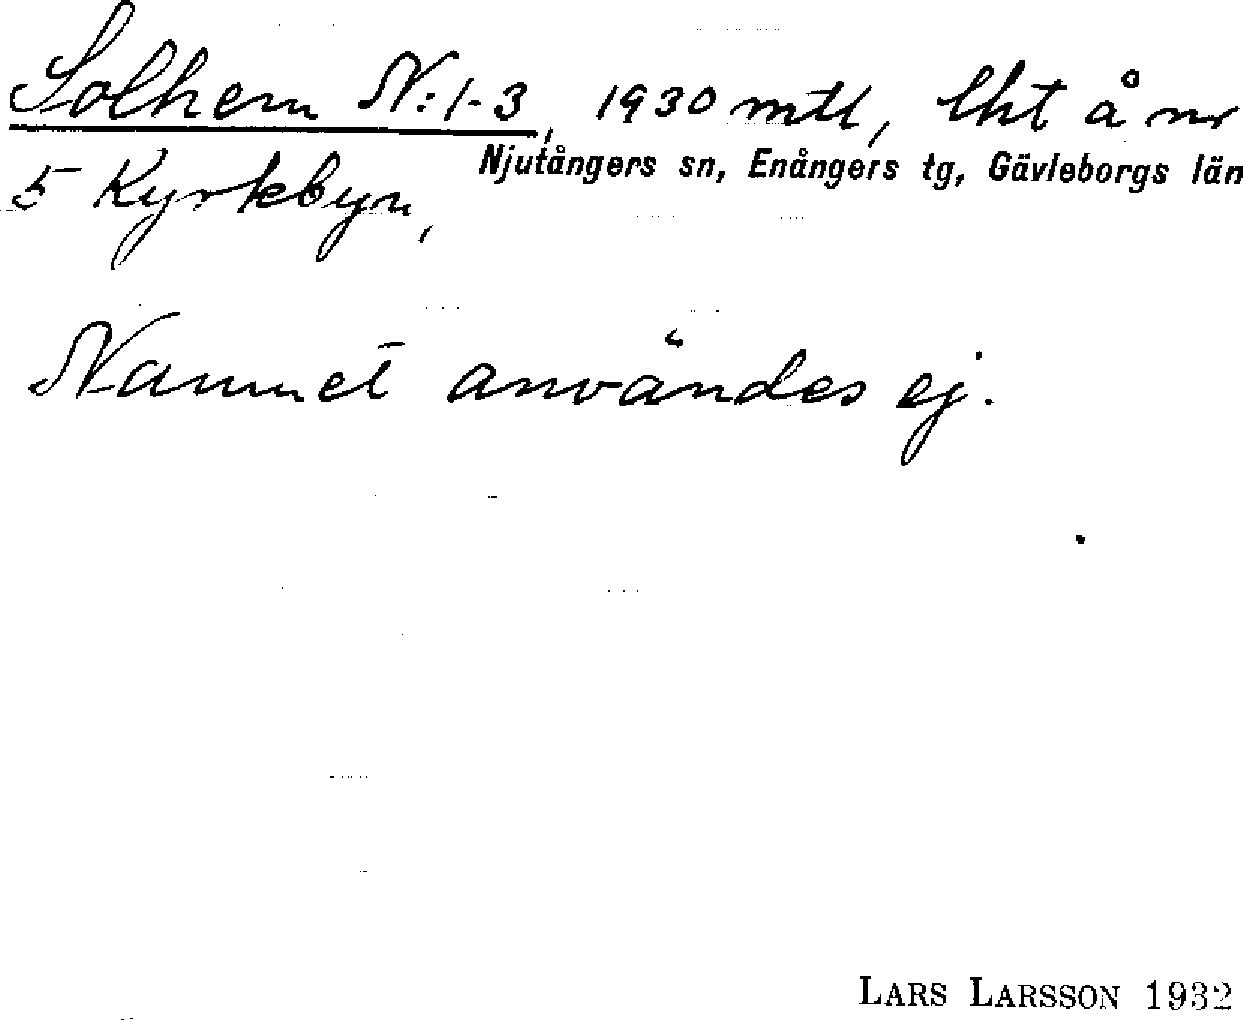 Solhem N:1-3, 1930 mtl, lht å nr
Njutångers sn, Enångers tg, Gävleborgs län
5 Kyrkbyn,
Namnet användes ej.
LARS LARSSON 1932